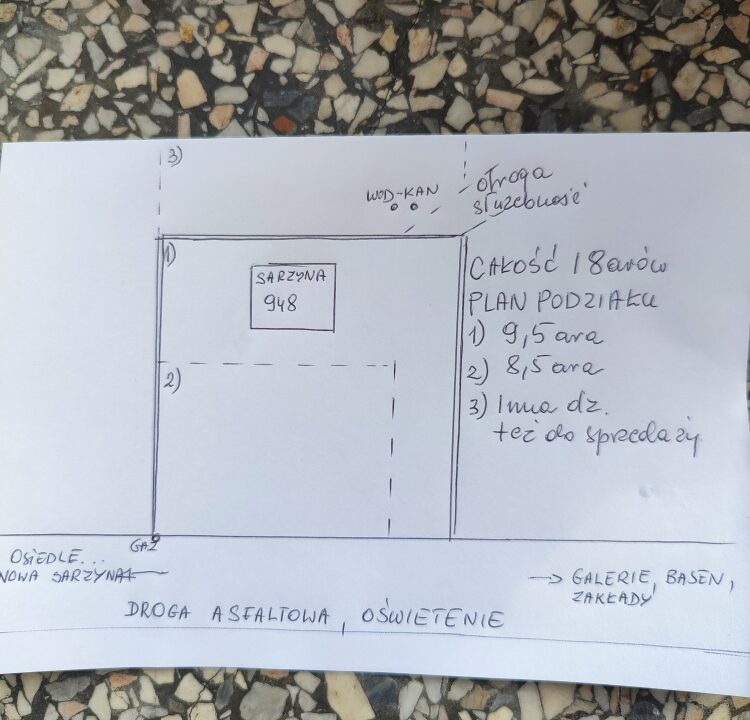 3)
WOD-KAN
droga
służebność
1)
SARZYNA
948
CAŁOŚĆ 18 arów
PLAN PODZIAŁU
1) 9,5 ara
2) 8,5 ara
3) Inna dz.
też do sprzedaży
2)
GAZ
OSIEDLE...
NOWA SARZYNA
→ GALERIE, BASEN,
ZAKŁADY
DROGA ASFALTOWA, OŚWIETENIE